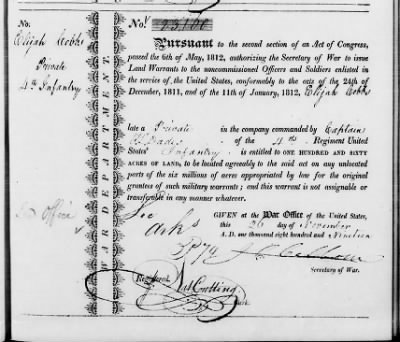 No. 23,160
No.
Elijah Cobbs
Private
4th Infantry
WAR DEPARTMENT.
Pursuant to the second section of an Act of Congress,
passed the 6th of May, 1812, authorizing the Secretary of War to issue
Land Warrants to the noncommissioned Officers and Soldiers enlisted
in the service of the United States, conformably to the acts of the 24th of
December, 1811, and of the 11th of January, 1812, Elijah Cobbs
late a Private in the company commanded by Captain
Dade's of the 4th Regiment United
States' Infantry is entitled to ONE HUNDRED AND SIXTY
ACRES OF LAND, to be located agreeably to the said act on any unlocated
parts of the six millions of acres appropriated by law for the original
grantees of such military warrants; and this warrant is not assignable or
transferable in any manner whatever.
Office
GIVEN at the War Office of the United States,
this 26 day of November
A. D. one thousand eight hundred and Nineteen
J. C. Calhoun
Secretary of War.
Registered,
Nat Cutting
Clerk.